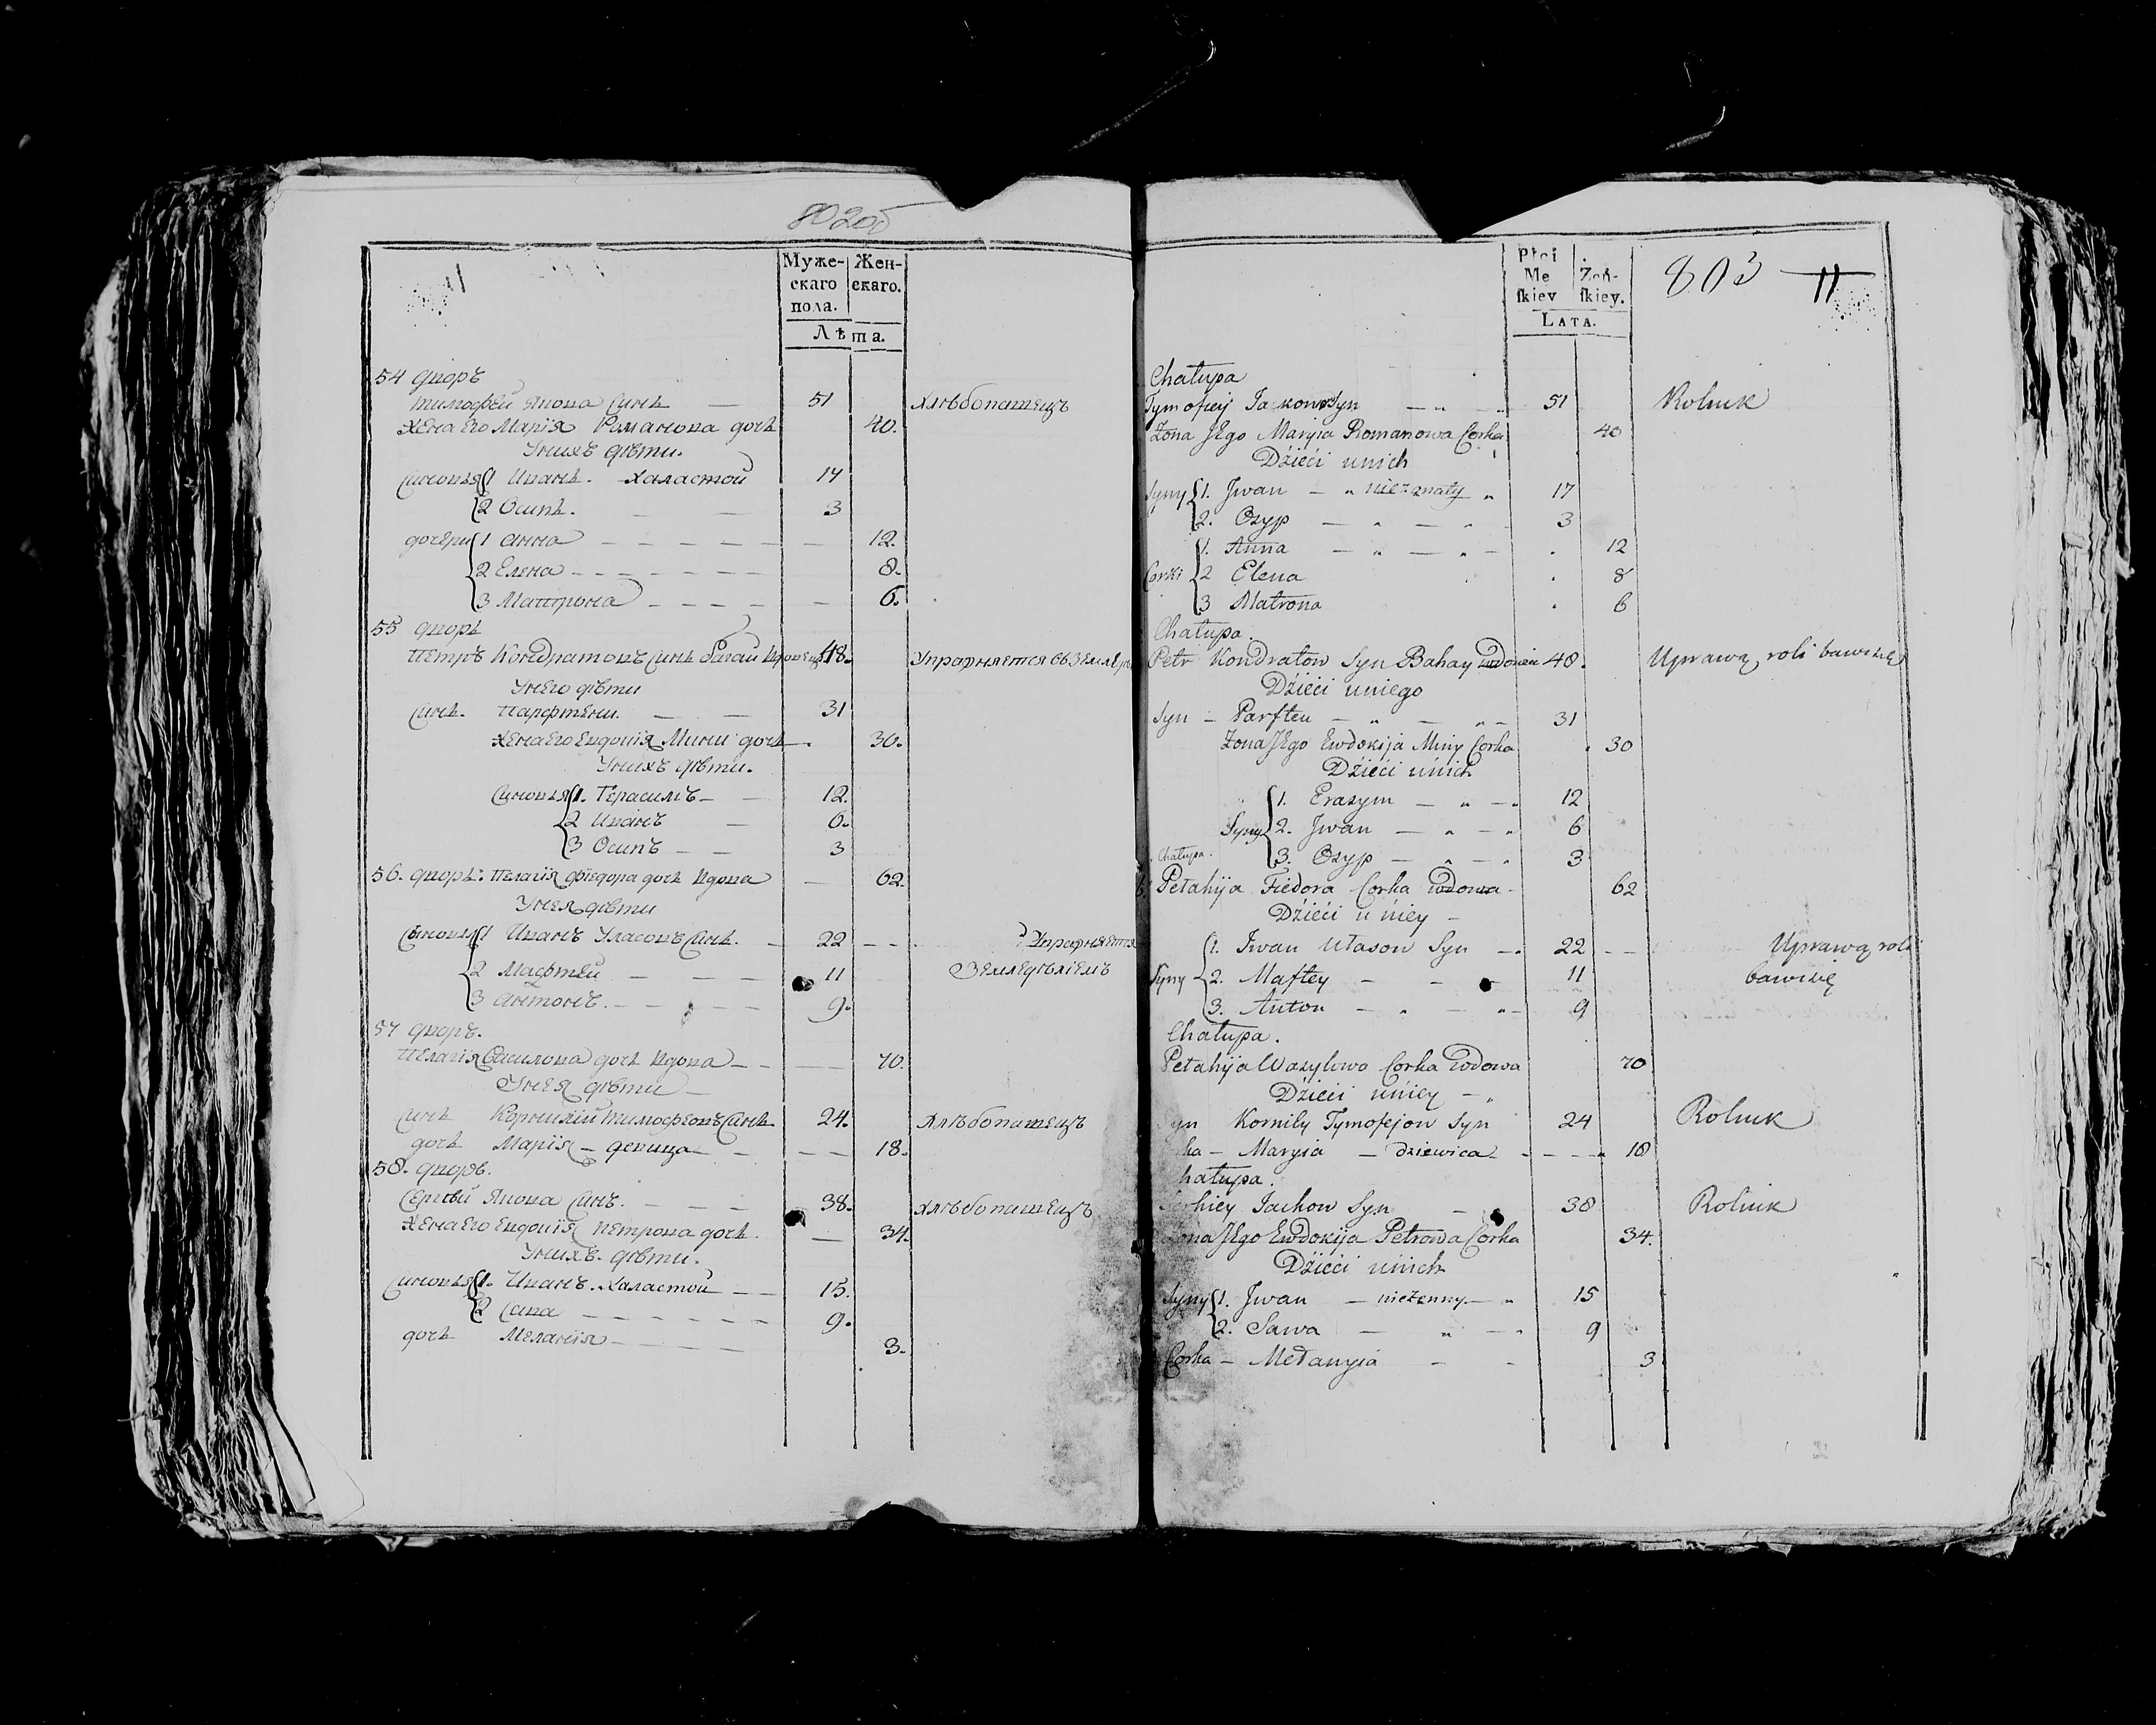 802об
Муже-
скаго
пола.
Жен-
скаго.
Лѣта.
54 дворъ
Тимофей Якова Синъ — 51 Хлѣбопашецъ
Жена Его Марія Романова дочь 40.
У нихъ дѣти.
Синовья 1 Иванъ. Халастой 17
2 Осипъ. — — 3
дочери 1 Анна — — — — — — 12.
2 Елена — — — — — — 8.
3 Матрона — — — — — 6.
55 дворъ
Петръ Кондратовъ Синъ Багай Вдовецъ 48. Упражняется въ Земледѣ
У него дѣти
Синъ. Парфтени. — — 31
Жена Его Евдокія Мини дочь — 30.
У нихъ дѣти.
Синовья 1. Герасимъ — — 12.
2 Иванъ — 6.
3 Осипъ — — 3
56. дворъ. Пелагія Фіедора дочь Вдова — 62.
У нея дѣти
Синовья 1 Иванъ Уласовъ Синъ. — 22 — — Упражняется
2 Мафтей — — — 11 Земледѣліемъ
3 Антонъ. — — — — 9.
57 дворъ.
Пелагія Василова дочь Вдова — — — 70.
У нея дѣти —
Синъ Корнилій Тимофеовъ Синъ 24. Хлѣбопашецъ
дочь Марія — девица — — — — 18.
58. дворъ.
Сергѣй Якова Синъ. — — — 38. Хлѣбопашецъ
Жена Его Евдокія Петрова дочь. — 34.
У нихъ. дѣти.
Синовья 1. Иванъ. Халастой — — 15.
2 Сава — — — — — — 9.
дочь Меланія — — — — — 3.
Płci
Mę
ſkiey
Żeń-
ſkiey.
Lata.
803
11
Chałupa
Tymofiej Jakow Syn — „ — 51 Rolnik
Żona JEgo Maryia Romanowa Corka 40
Dżieći unich
Syny 1. Jwan — „ nieżonaty „ 17
2. Ozyp — „ — „ 3
Corki 1. Anna — „ — „ — 12
2 Elena 8
3 Matrona 6
Chałupa.
Petr Kondratow Syn Bahay wdowiec 48. Uprawą roli bawi się
Dżieći uniego
Syn — Parften — „ — „ — 31
Żona JEgo Ewdokija Miny Corka 30
Dżieći unich
Syny 1. Erazym — „ — 12
2. Jwan — „ — „ 6
3. Ozyp — „ — „ 3
Chałupa.
Pełahija Fiedora Corka wdowa — 62
Dżieći u niey —
Syny 1. Iwan Ułasow Syn — 22 — — Uprawą roli
2. Maftey — — 11 bawi się
3. Anton — „ — „ — 9
Chałupa.
Pełahija Wasyłowa Corka wdowa 70
Dżieći uniey — „
yn Kornily Tymofejow Syn 24 Rolnik
ka — Maryia — dziewica — — — — 18
hałupa.
rhiey Jackow Syn — 38 Rolnik
ona JEgo Ewdokija Petrowa Corka 34.
Dżieći unich
Syny 1. Jwan — nieżenny — „ 15
2. Sawa — „ — 9
Corka — Mełanyia — — 3